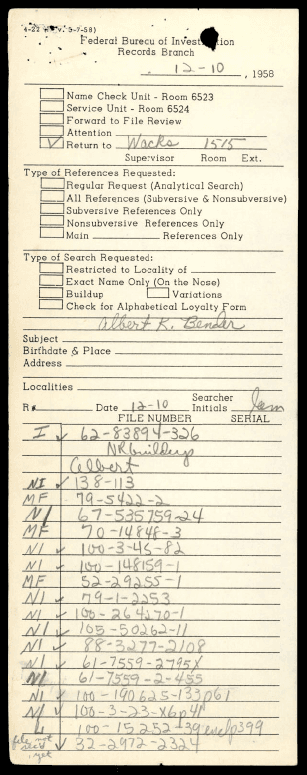 4-22 (Rev. 3-7-58)
Federal Bureau of Investigation
Records Branch
12-10, 1958
Name Check Unit - Room 6523
Service Unit - Room 6524
Forward to File Review
Attention
✓ Return to Wacks 1515
Supervisor Room Ext.
Type of References Requested:
Regular Request (Analytical Search)
All References (Subversive & Nonsubversive)
Subversive References Only
Nonsubversive References Only
Main References Only
Type of Search Requested:
Restricted to Locality of
Exact Name Only (On the Nose)
Buildup Variations
Check for Alphabetical Loyalty Form
Albert K. Bender
Subject
Birthdate & Place
Address
Localities
R# Date 12-10 Searcher Initials
FILE NUMBER SERIAL
I ✓ 62-83894-326
NR buildup
Albert
NI ✓ 138-113
MF 79-5422-2
NI ✓ 67-535759-24
MF 70-14848-3
NI ✓ 100-3-45-82
NI ✓ 100-148159-1
MF 52-29255-1
NI ✓ 79-1-2253
NI ✓ 100-264270-1
NI ✓ 105-50262-11
NI ✓ 88-3277-2108
NI ✓ 61-7559-2795X
NI 61-7559-2-455
NI ✓ 100-190625-133p61
NI ✓ 100-3-23-X6p41
100-15252-39 encl p399
file not rec'd yet 32-2972-2324